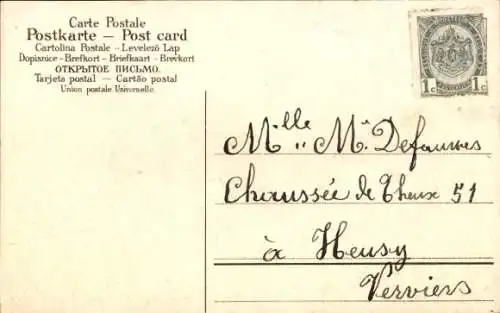 Carte Postale
Postkarte – Post card
Cartolina Postale - Levelező Lap
Dopisnice - Brefkort - Briefkaart - Brevkort
ОТКРЫТОЕ ПИСЬМО.
Tarjeta postal — Cartão postal
Union postale Universelle.
1c 1c
Mlle M. Defauwes
Chaussée de Theux 51
à Heusy
Verviers